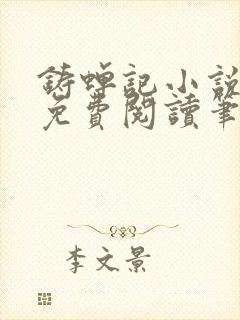 鋳蟬記小說
免費閱讀筆
李文景